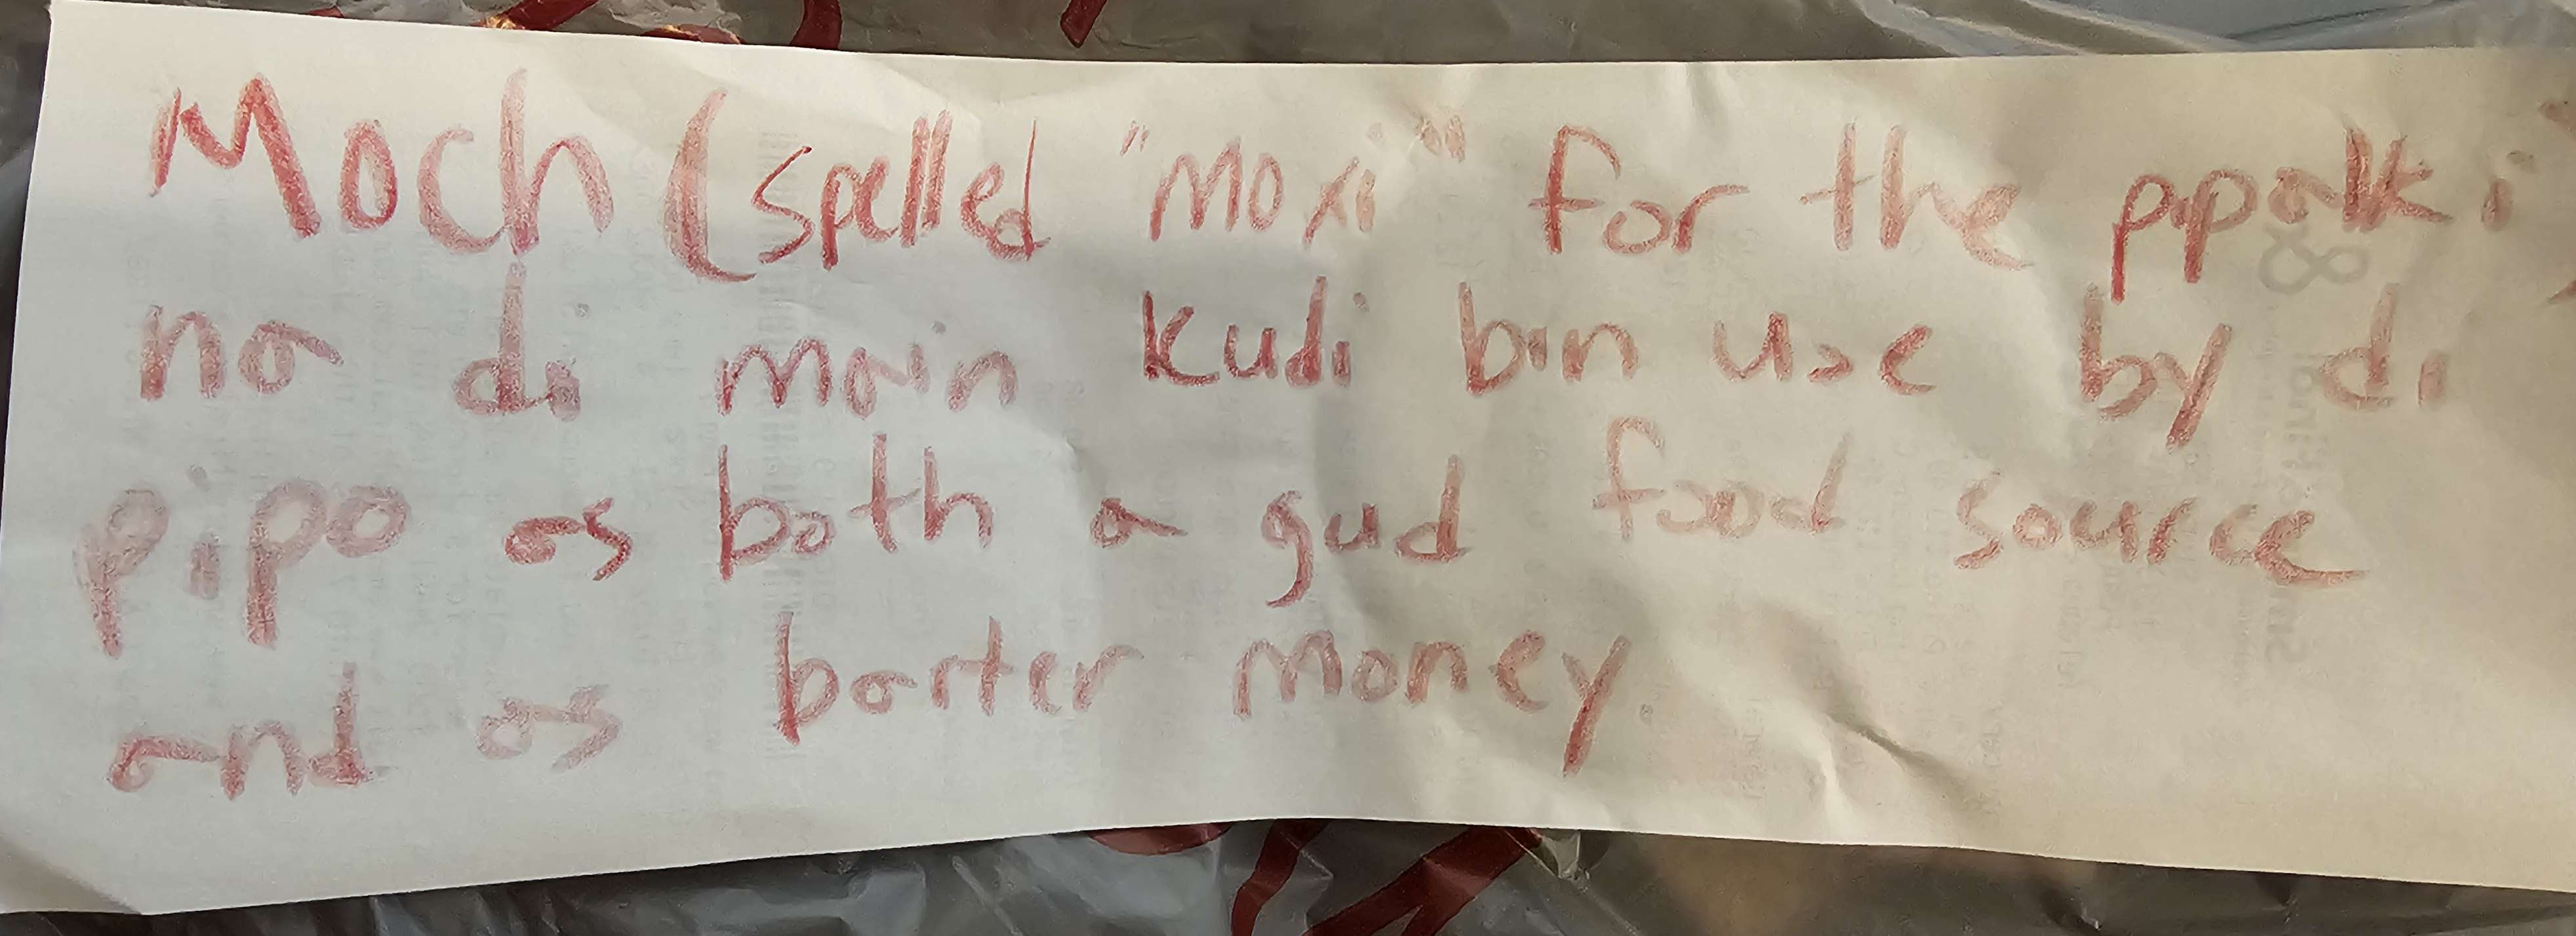 Moch (spelled "moxi" for the ppalki
na di main kudi bin use by di
pipo as both a gud food source
and as barter money.